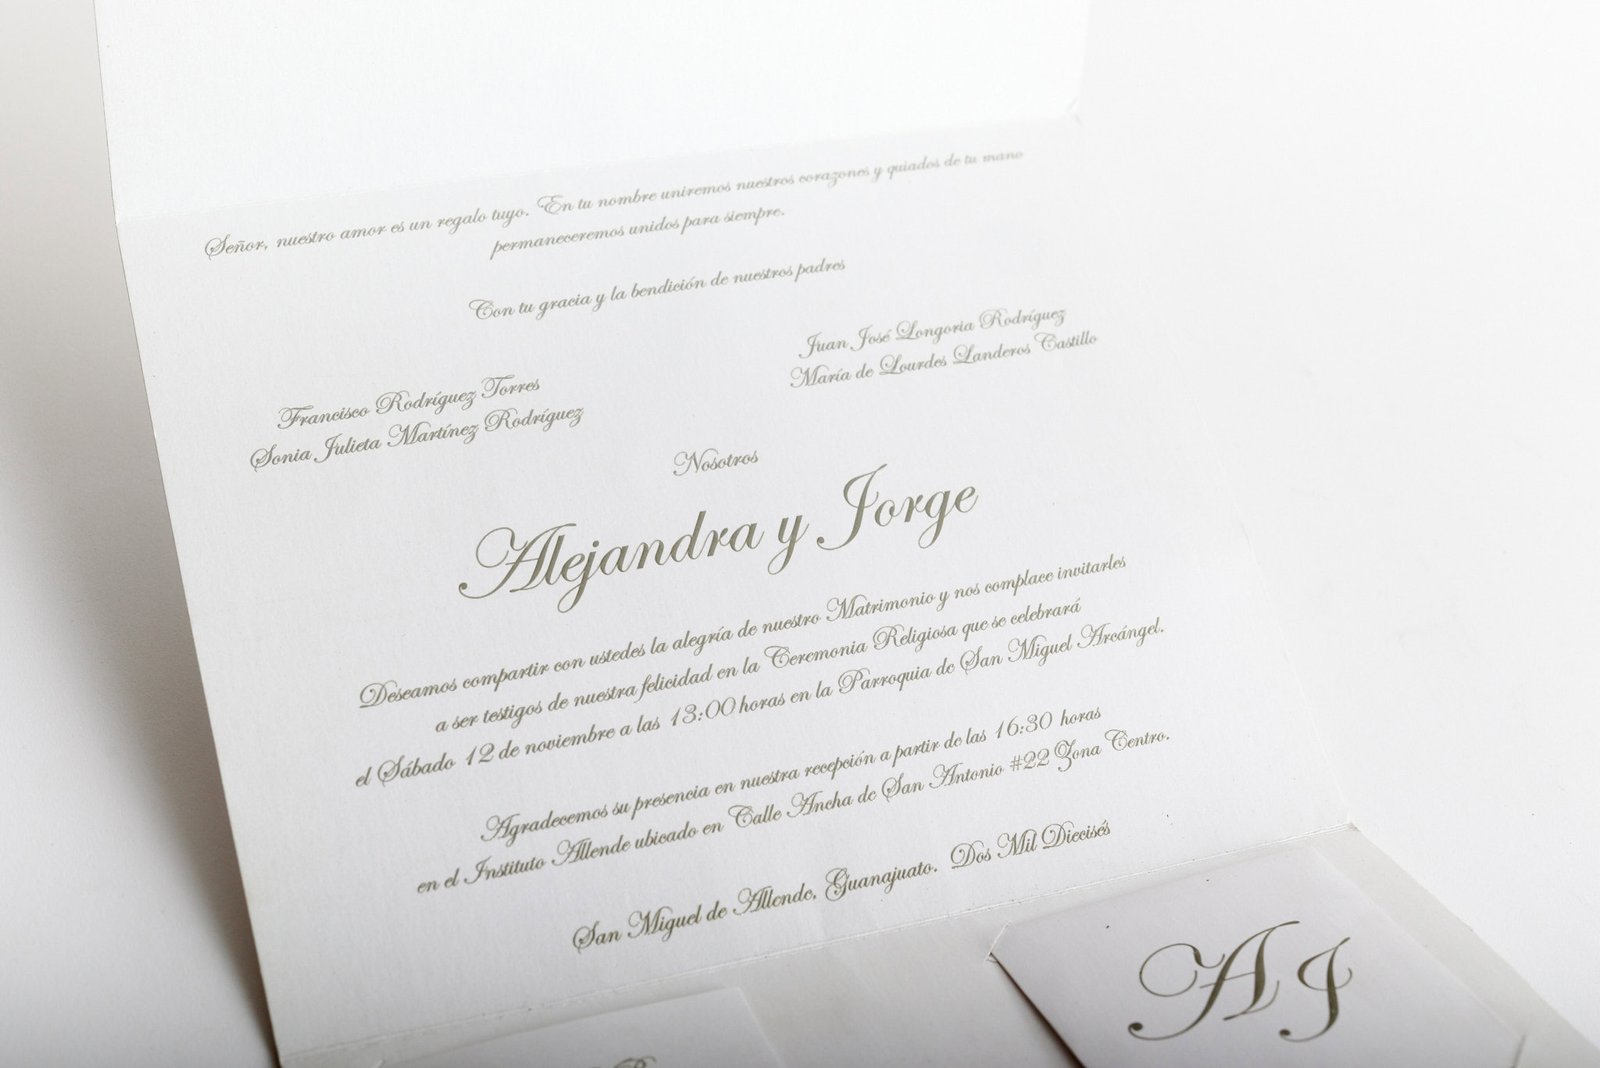 Señor, nuestro amor es un regalo tuyo. En tu nombre uniremos nuestros corazones y guiados de tu mano
permaneceremos unidos para siempre.
Con tu gracia y la bendición de nuestros padres
Francisco Rodríguez Torres
Sonia Julieta Martínez Rodríguez
Juan José Longoria Rodríguez
María de Lourdes Landeros Castillo
Nosotros
Alejandra y Jorge
Deseamos compartir con ustedes la alegría de nuestro Matrimonio y nos complace invitarles
a ser testigos de nuestra felicidad en la Ceremonia Religiosa que se celebrará
el Sábado 12 de noviembre a las 13:00 horas en la Parroquia de San Miguel Arcángel.
Agradecemos su presencia en nuestra recepción a partir de las 16:30 horas
en el Instituto Allende ubicado en Calle Ancha de San Antonio #22 Zona Centro.
San Miguel de Allende, Guanajuato. Dos Mil Dieciséis
AJ